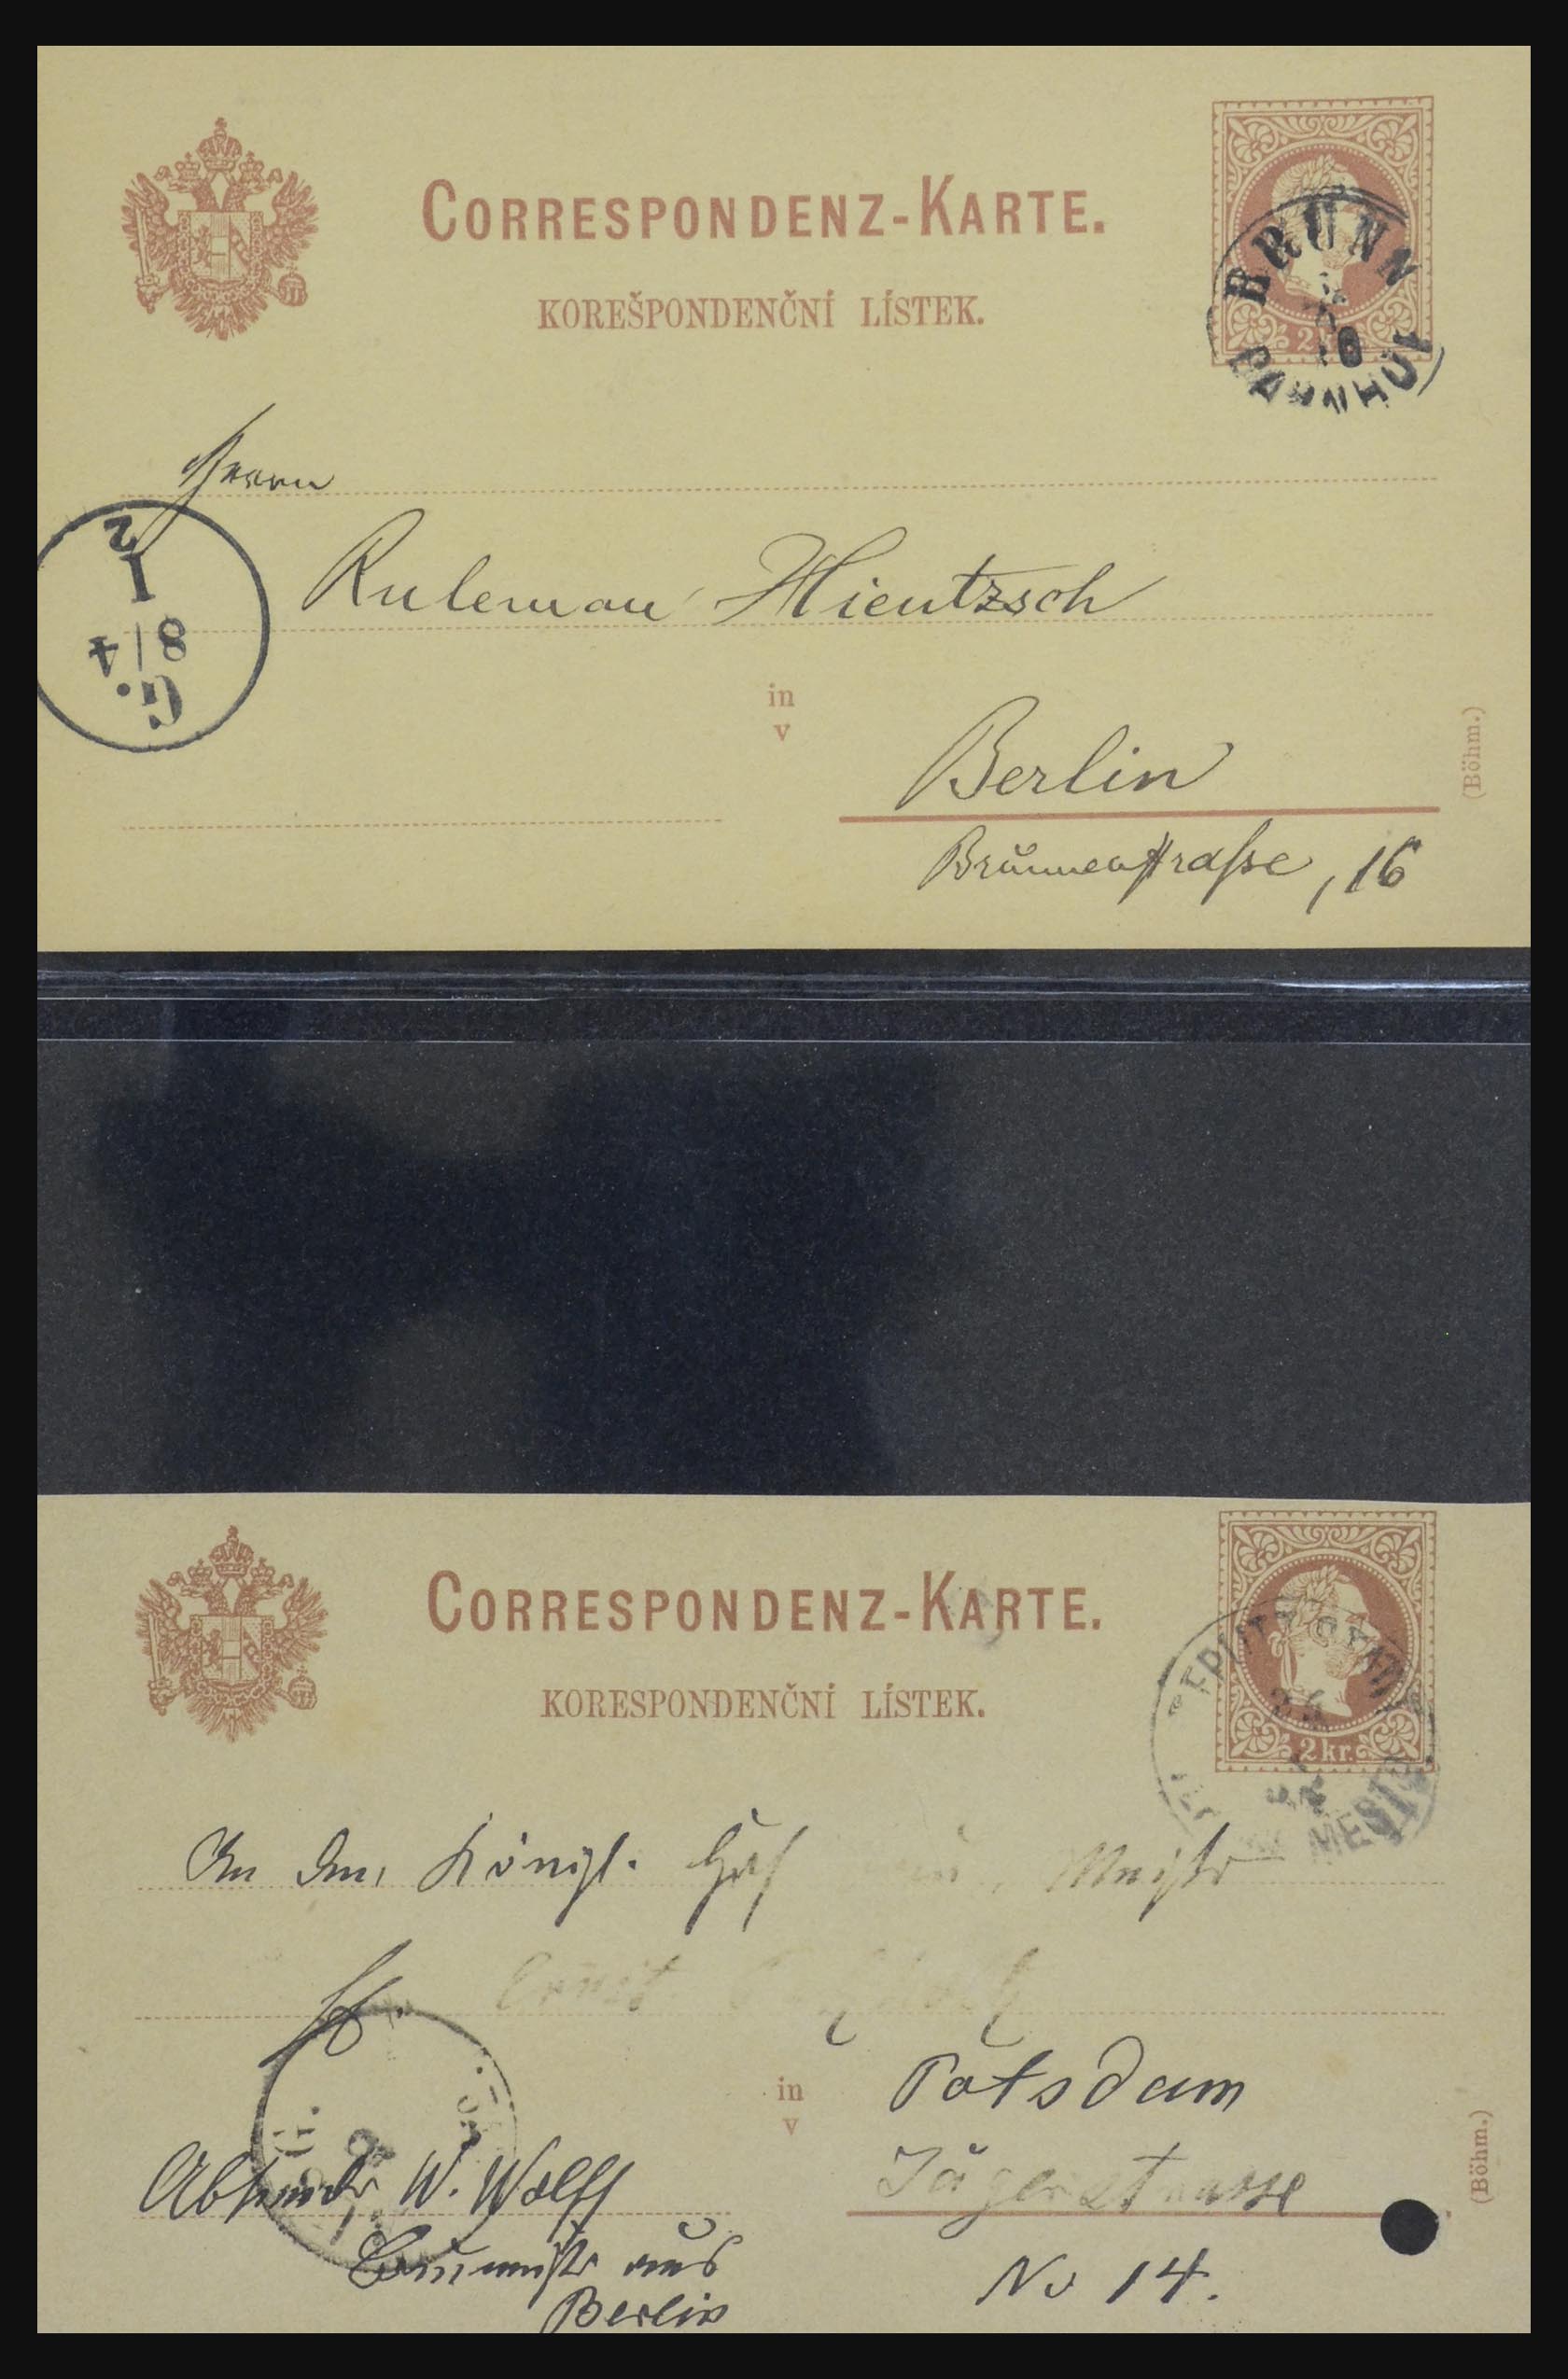 CORRESPONDENZ-KARTE.
KOREŠPONDENČNÍ LÍSTEK.
2
BRÜNN
BAHNHOF
Herrn
Ruleman Hientzsch
2
I
8/4
G.
in
v
Berlin
Brunnenstraße, 16
(Böhm.)
CORRESPONDENZ-KARTE.
KORESPONDENČNÍ LÍSTEK.
2 kr.
MESTO
An den Königl.
Ernst
in
v
Potsdam
Jägerstrasse
No 14.
Absender W. Wolff
aus
Berlin
(Böhm.)